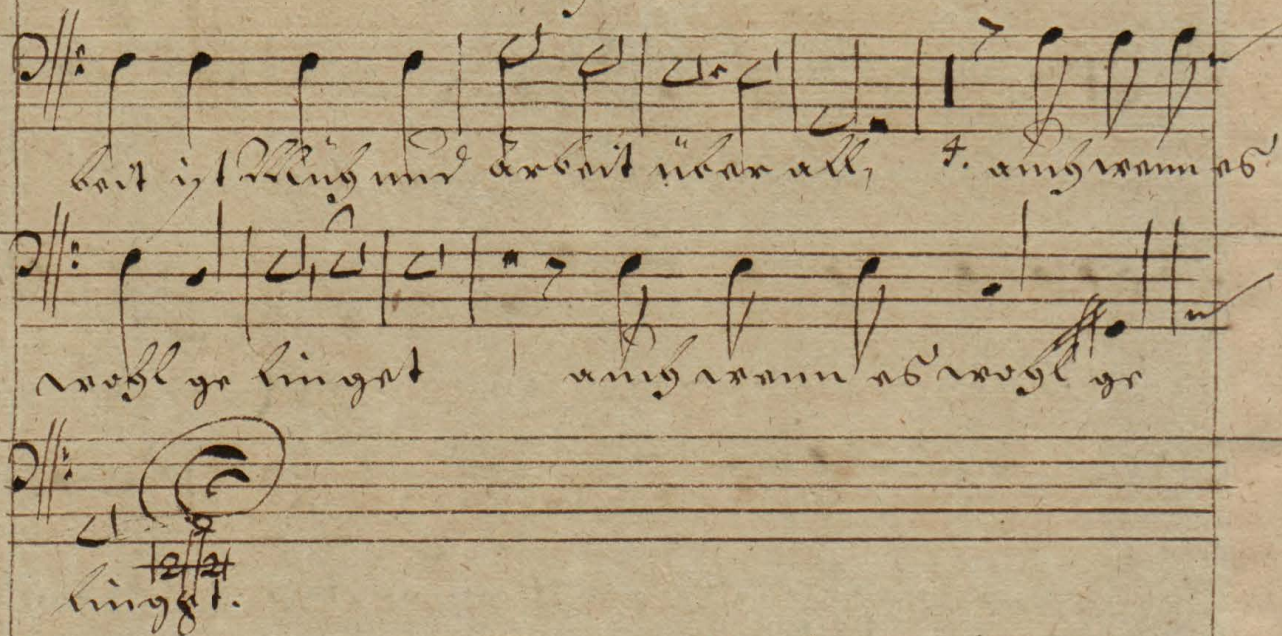 beit ist Müh und arbeit über all, 4. auch wenn es
wohl ge linget auch wenn es wohl ge
linget.